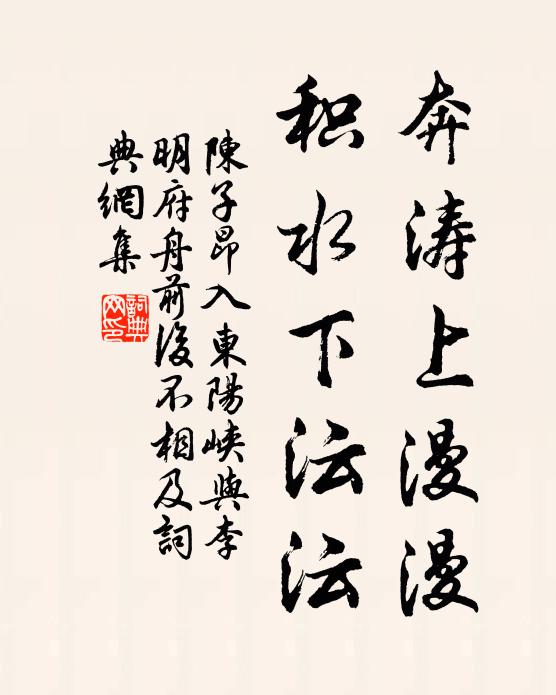 奔涛上漫漫
积水下沄沄
陳子昂入東陽峽與李
明府舟前後不相及詞
典網集
詞典
网印